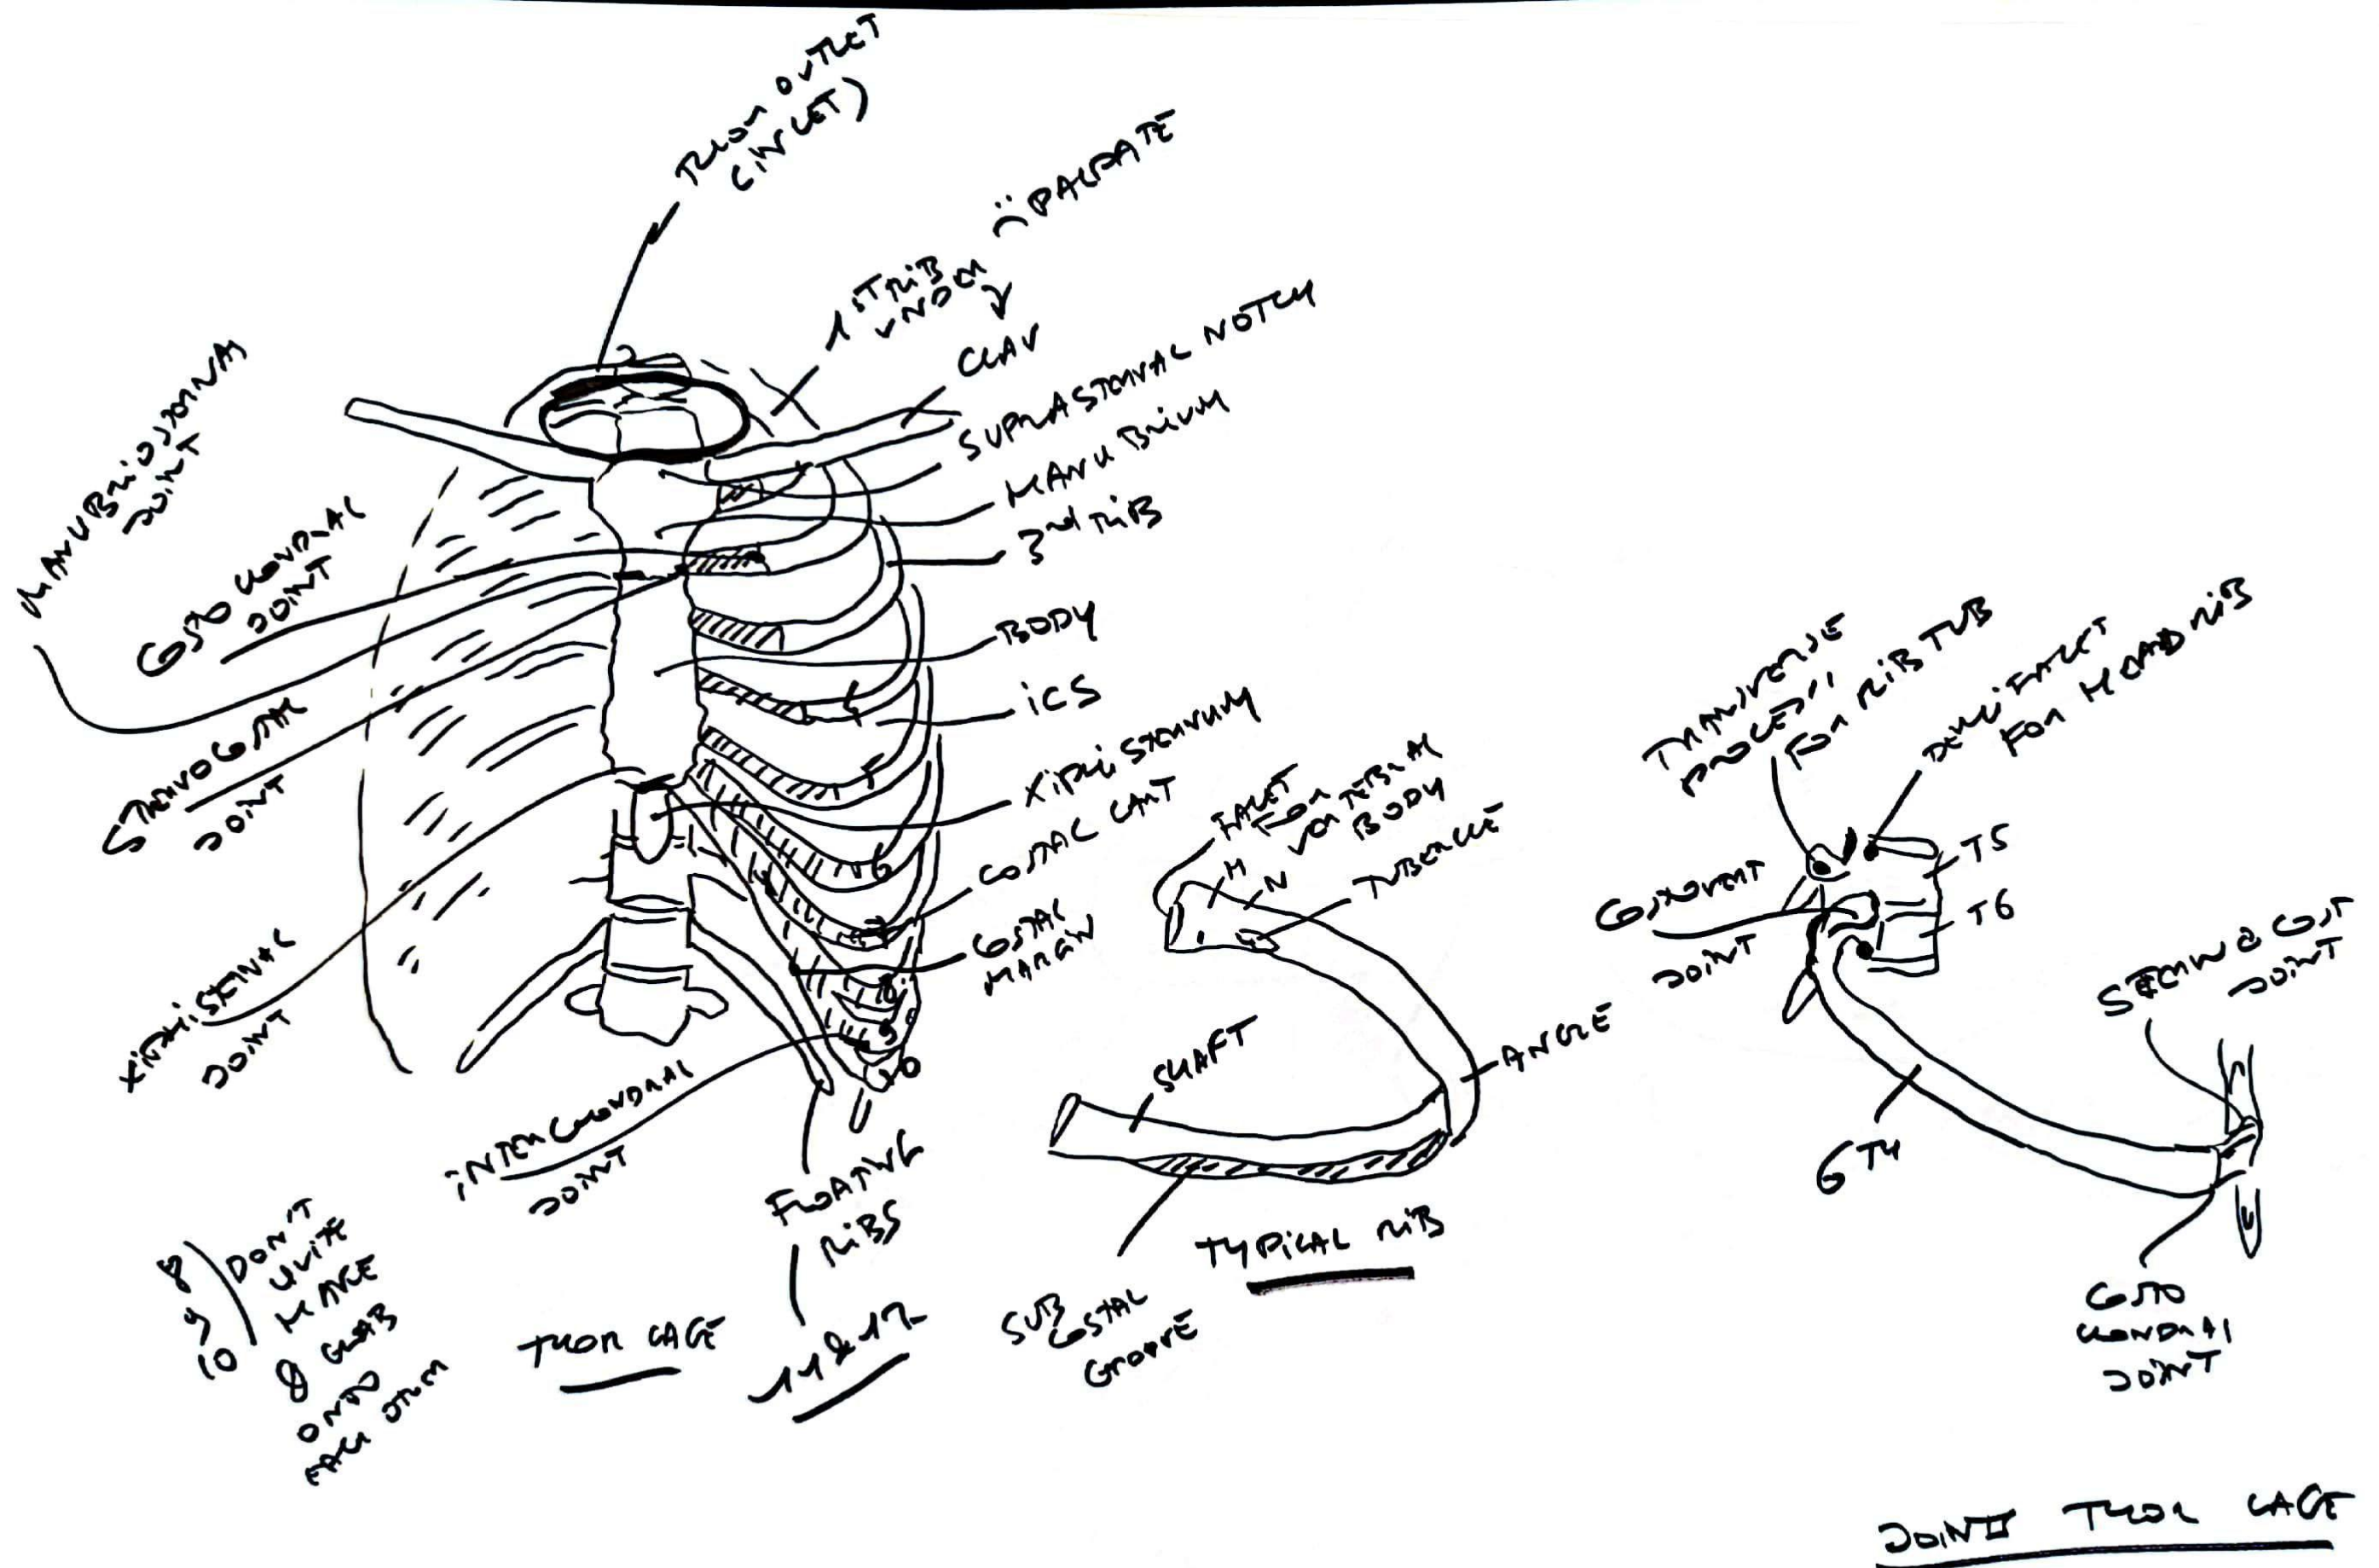 THOR OUTLET
(INLET)
1ST RIB
UNDER
:( PALPATE
CLAV
SUPRASTERNAL NOTCH
MANUBRIUM
3rd RIB
BODY
ICS
XIPHISTERNUM
COSTAL CART
COSTAL
MARGIN
MANUBRIOSTERNAL
JOINT
COSTO CHONDRAL
JOINT
STERNOCOSTAL
JOINT
XIPHISTERNAL
JOINT
INTERCHONDRAL
JOINT
6
7
8
9
10
FLOATING
RIBS
11 & 12
8
9
10
DON'T
QUITE
MAKE
& GRAB
ONTO
EACH OTHER
THOR CAGE
FACET
FOR
VERTEBRAL
BODY
H
N
TUBERCLE
ANGLE
SHAFT
SUB
COSTAL
GROOVE
TYPICAL RIB
TRANSVERSE
PROCESS
FOR RIB TUB
DEMIFACET
FOR HEAD RIB
T5
T6
COSTOVERT
JOINT
STERNO COST
JOINT
6TH
COSTO
CHONDRAL
JOINT
JOINTS THOR CAGE